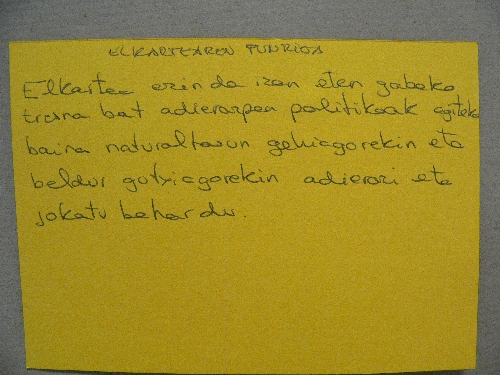 ELKARTEAREN FUNTZIOA
Elkartea ezin da izan eten gabeko
tresna bat adierazpen politikoak egiteko
baina naturaltasun gehiagorekin eta
beldur gutxiagorekin adierazi eta
jokatu behar du.